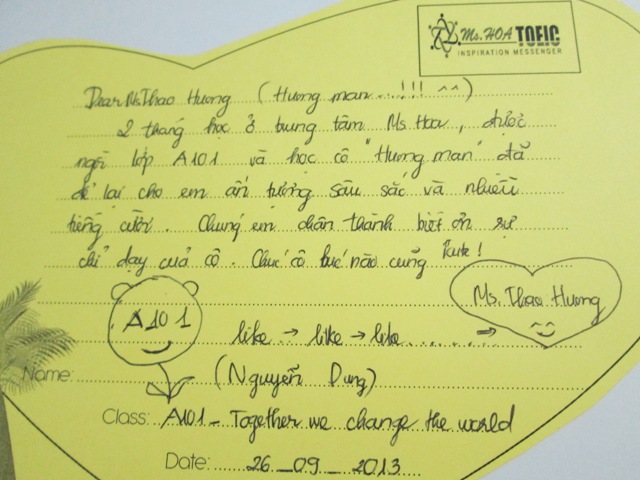 Ms. HOA TOEIC
INSPIRATION MESSENGER
Dear Ms Thao Hương (Hương man...!!! ^^)
2 tháng học ở trung tâm Ms Hoa, được
ngồi lớp A101 và học cô "Hương man" đã
để lại cho em ấn tượng sâu sắc và nhiều
tiếng cười. Chúng em chân thành biết ơn sự
chỉ dạy của cô. Chúc cô lúc nào cũng kute!
Ms. Thao Hương
A101
like → like → like ....... ⇒
Name: (Nguyễn Dung)
Class: A101 - Together we change the world
Date: 26_09_2013